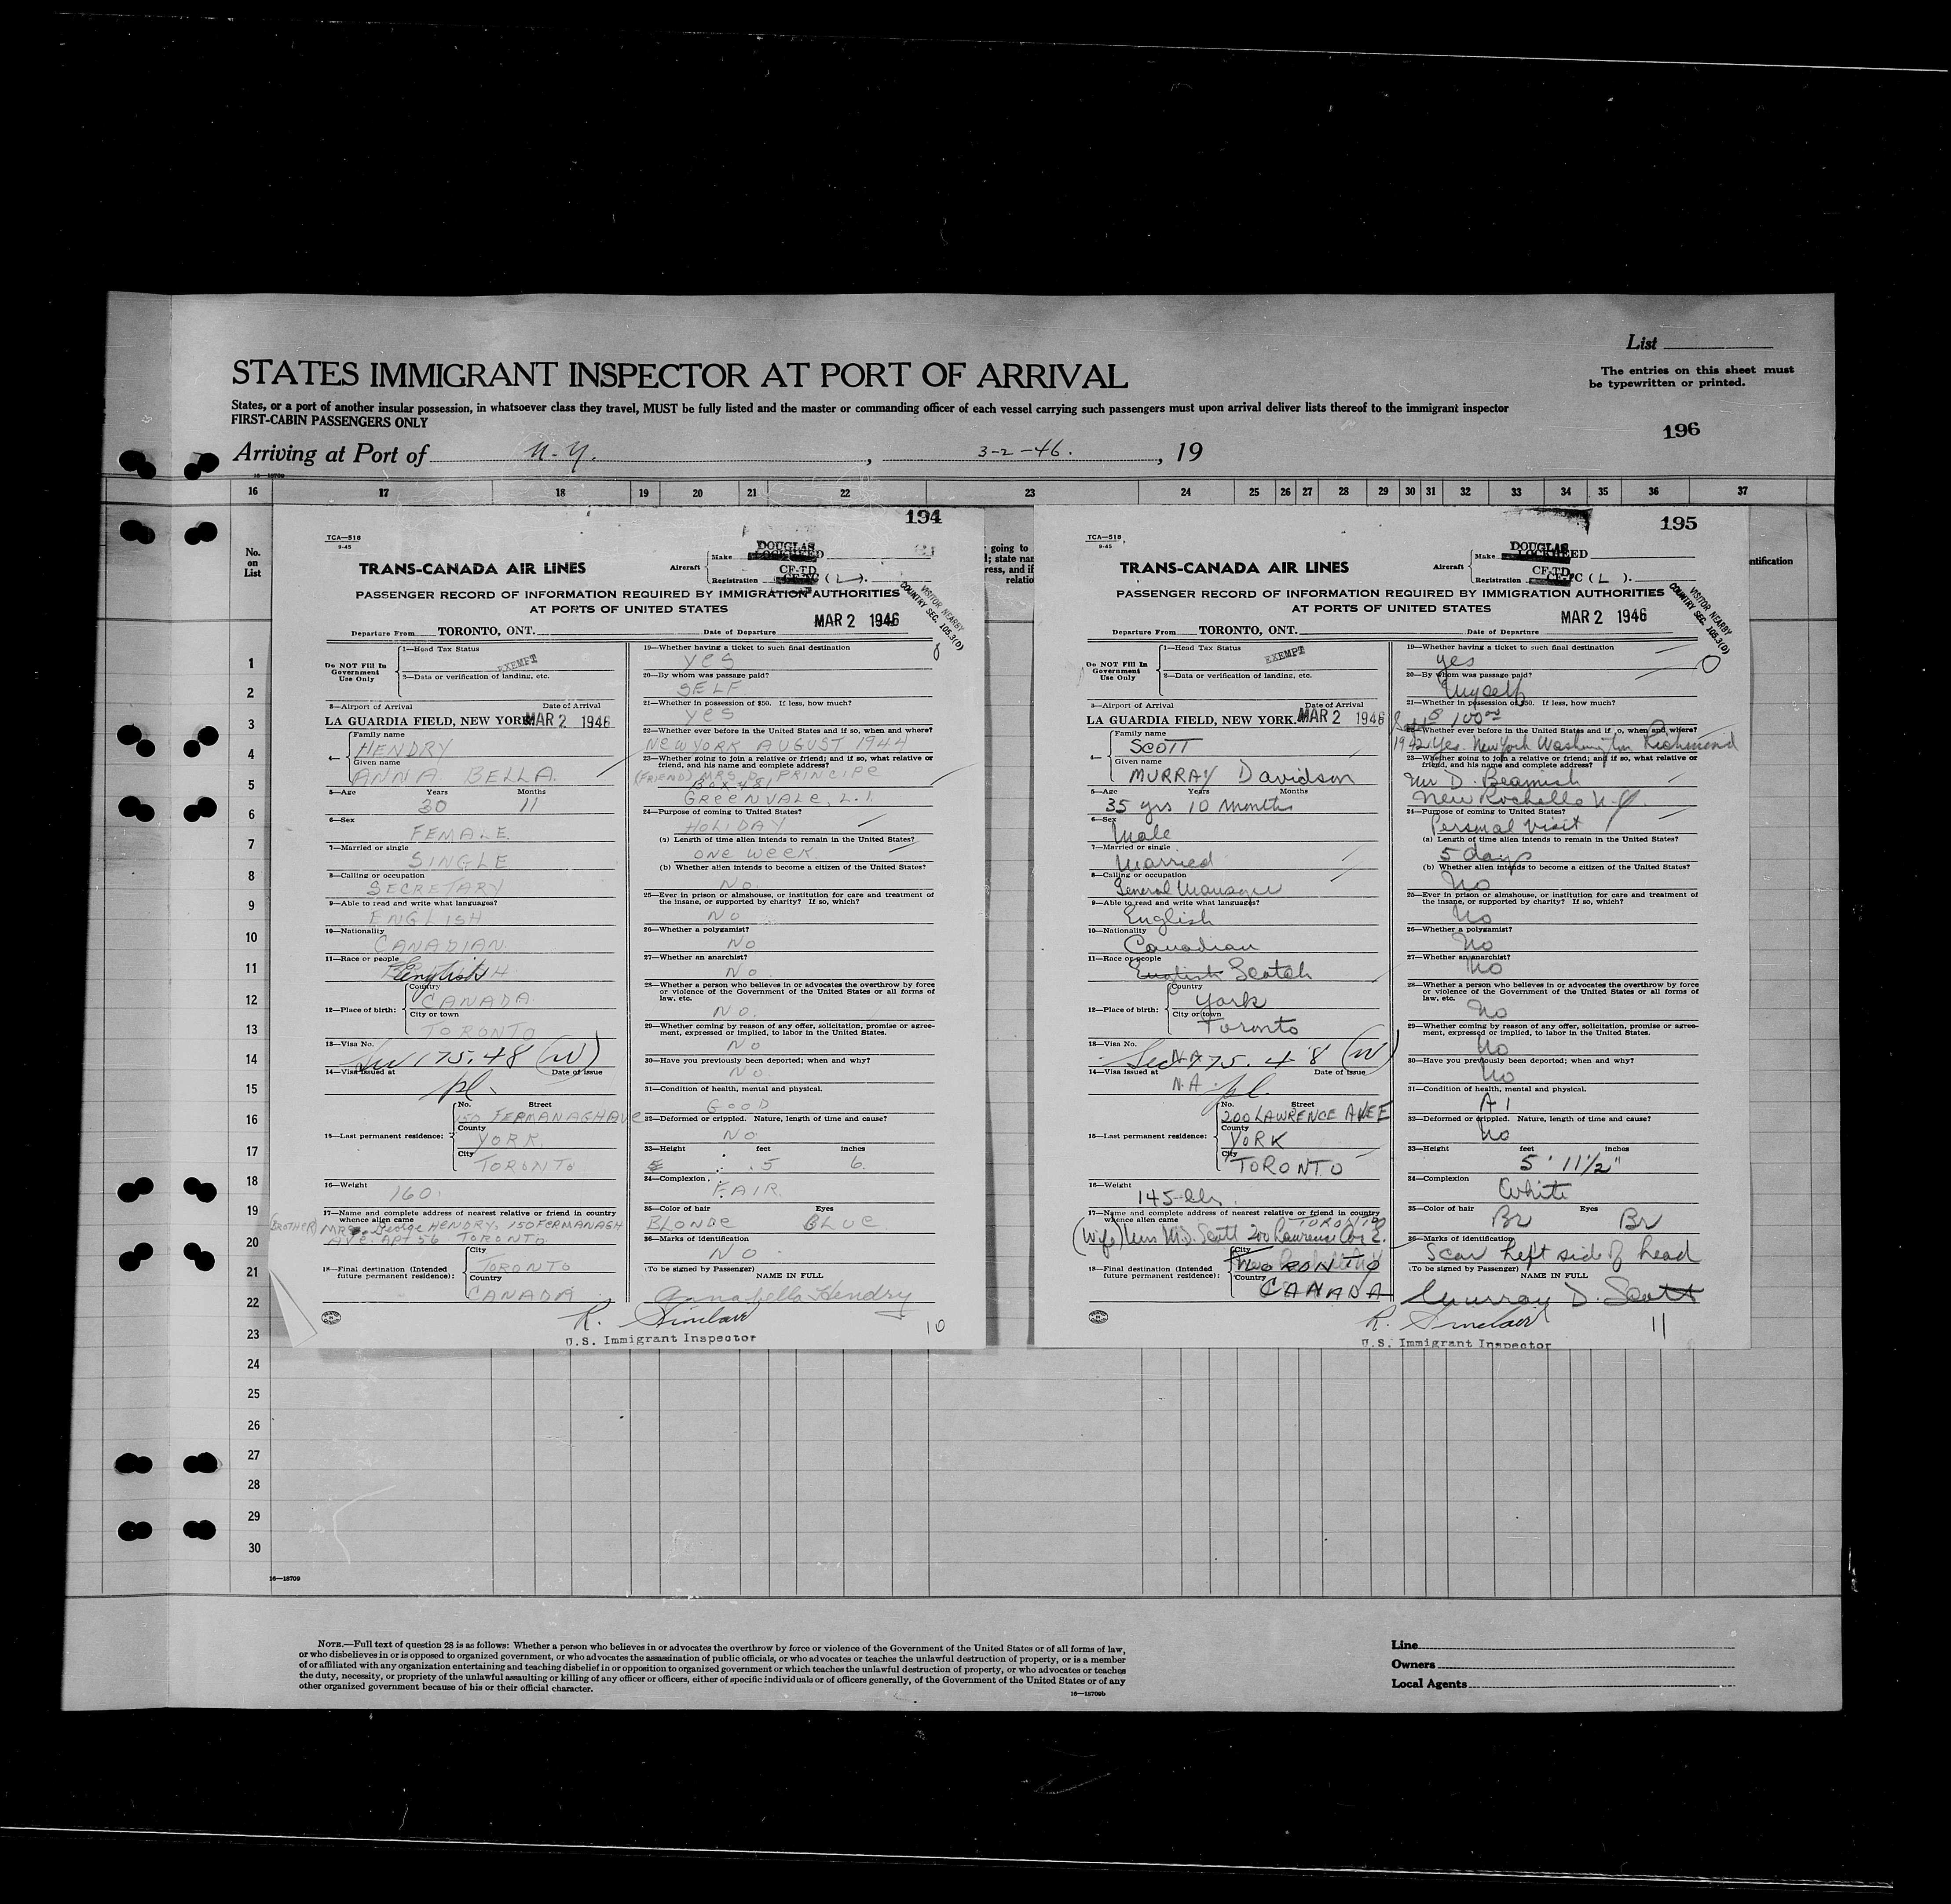 List
STATES IMMIGRANT INSPECTOR AT PORT OF ARRIVAL
The entries on this sheet must
be typewritten or printed.
States, or a port of another insular possession, in whatsoever class they travel, MUST be fully listed and the master or commanding officer of each vessel carrying such passengers must upon arrival deliver lists thereof to the immigrant inspector
FIRST-CABIN PASSENGERS ONLY
196
Arriving at Port of N.Y. , 3-2-46. , 19
16 17 18 19 20 21 22 23 24 25 26 27 28 29 30 31 32 33 34 35 36 37
No.
on
List
1
2
3
4
5
6
7
8
9
10
11
12
13
14
15
16
17
18
19
20
21
22
23
24
25
26
27
28
29
30
16—18709
194
TCA—518
9-45
TRANS-CANADA AIR LINES
Aircraft
Make DOUGLAS LOCKHEED
Registration CF-TD CF-TC (L).
PASSENGER RECORD OF INFORMATION REQUIRED BY IMMIGRATION AUTHORITIES
AT PORTS OF UNITED STATES
VISITOR NEARBY
COUNTRY SEC. 105.3(D)
MAR 2 1946
Departure From TORONTO, ONT. Date of Departure
Do NOT Fill In
Government
Use Only
1—Head Tax Status
EXEMPT
2—Data or verification of landing, etc.
3—Airport of Arrival Date of Arrival
LA GUARDIA FIELD, NEW YORK MAR 2 1946
4— Family name
HENDRY
Given name
ANNA BELLA.
5—Age Years Months
30 11
6—Sex
FEMALE
7—Married or single
SINGLE
8—Calling or occupation
SECRETARY
9—Able to read and write what languages?
ENGLISH
10—Nationality
CANADIAN.
11—Race or people
English
12—Place of birth:
Country
CANADA
City or town
TORONTO
13—Visa No.
Sec 175.48 (W)
14—Visa issued at Date of Issue
pl.
15—Last permanent residence:
No. Street
150 FERMANAGH AVE
County
YORK
City
TORONTO
16—Weight
160
17—Name and complete address of nearest relative or friend in country
whence alien came
(BROTHER) MR. George HENDRY, 150 FERMANAGH
AVE. APT 56 TORONTO
18—Final destination (Intended
future permanent residence):
City
TORONTO
Country
CANADA
19—Whether having a ticket to such final destination
YES
20—By whom was passage paid?
SELF
21—Whether in possession of $50. If less, how much?
YES
22—Whether ever before in the United States and if so, when and where?
NEW YORK AUGUST 1944
23—Whether going to join a relative or friend; and if so, what relative or
friend, and his name and complete address?
(FRIEND) MRS D. PRINCIPE
BOX 481
GREENVALE, L.I.
24—Purpose of coming to United States?
HOLIDAY
(a) Length of time alien intends to remain in the United States?
ONE WEEK
(b) Whether alien intends to become a citizen of the United States?
NO.
25—Ever in prison or almshouse, or institution for care and treatment of
the insane, or supported by charity? If so, which?
NO
26—Whether a polygamist?
NO
27—Whether an anarchist?
NO.
28—Whether a person who believes in or advocates the overthrow by force
or violence of the Government of the United States or all forms of
law, etc.
NO.
29—Whether coming by reason of any offer, solicitation, promise or agree-
ment, expressed or implied, to labor in the United States.
NO
30—Have you previously been deported; when and why?
NO.
31—Condition of health, mental and physical.
GOOD
32—Deformed or crippled. Nature, length of time and cause?
NO
33—Height feet inches
5 6.
34—Complexion
FAIR.
35—Color of hair Eyes
BLONDE BLUE
36—Marks of identification
NO
(To be signed by Passenger) NAME IN FULL
Annabella Hendry
R. Sinclair 10
U.S. Immigrant Inspector
going to
; state nam
ress, and if
relatio
195
TCA—518
9-45
TRANS-CANADA AIR LINES
Aircraft
Make DOUGLAS LOCKHEED
Registration CF-TD CF-TC (L).
PASSENGER RECORD OF INFORMATION REQUIRED BY IMMIGRATION AUTHORITIES
AT PORTS OF UNITED STATES
VISITOR NEARBY
COUNTRY SEC. 105.3(D)
MAR 2 1946
Departure From TORONTO, ONT. Date of Departure
Do NOT Fill In
Government
Use Only
1—Head Tax Status
EXEMPT
2—Data or verification of landing, etc.
3—Airport of Arrival Date of Arrival
LA GUARDIA FIELD, NEW YORK. MAR 2 1946
4— Family name
SCOTT
Given name
MURRAY Davidson
5—Age Years Months
35 yrs 10 months
6—Sex
Male
7—Married or single
Married
8—Calling or occupation
General Manager
9—Able to read and write what languages?
English
10—Nationality
Canadian
11—Race or people
English Scotch
12—Place of birth:
Country
York
City or town
Toronto
13—Visa No.
Sec N.A 175.48 (W)
14—Visa issued at Date of Issue
N.A. pl.
15—Last permanent residence:
No. Street
200 LAWRENCE AVE E
County
YORK
City
TORONTO
16—Weight
145 lbs.
17—Name and complete address of nearest relative or friend in country
whence alien came
TORONTO
(Wife) Mrs M.D. Scott 200 Lawrence Ave E.
18—Final destination (Intended
future permanent residence):
City
TORONTO
Country
CANADA
19—Whether having a ticket to such final destination
yes
20—By whom was passage paid?
Myself
21—Whether in possession of $50. If less, how much?
$ 100.00
22—Whether ever before in the United States and if so, when and where?
1942 Yes. New York Washington Richmond
23—Whether going to join a relative or friend; and if so, what relative or
friend, and his name and complete address?
Mr D. Beamish
New Rochelle N.Y
24—Purpose of coming to United States?
Personal Visit
(a) Length of time alien intends to remain in the United States?
5 days
(b) Whether alien intends to become a citizen of the United States?
No
25—Ever in prison or almshouse, or institution for care and treatment of
the insane, or supported by charity? If so, which?
No
26—Whether a polygamist?
No
27—Whether an anarchist?
No
28—Whether a person who believes in or advocates the overthrow by force
or violence of the Government of the United States or all forms of
law, etc.
No
29—Whether coming by reason of any offer, solicitation, promise or agree-
ment, expressed or implied, to labor in the United States.
No
30—Have you previously been deported; when and why?
No
31—Condition of health, mental and physical.
A1
32—Deformed or crippled. Nature, length of time and cause?
No
33—Height feet inches
5' 11 1/2"
34—Complexion
White
35—Color of hair Eyes
Br Br
36—Marks of identification
Scar left side of head
(To be signed by Passenger) NAME IN FULL
Murray D. Scott
R. Sinclair 11
U.S. Immigrant Inspector
ntification
NOTE.—Full text of question 28 is as follows: Whether a person who believes in or advocates the overthrow by force or violence of the Government of the United States or of all forms of law,
or who disbelieves in or is opposed to organized government, or who advocates the assassination of public officials, or who advocates or teaches the unlawful destruction of property, or is a member
of or affiliated with any organization entertaining and teaching disbelief in or opposition to organized government or which teaches the unlawful destruction of property, or who advocates or teaches
the duty, necessity, or propriety of the unlawful assaulting or killing of any officer or officers, either of specific individuals or of officers generally, of the Government of the United States or of any
other organized government because of his or their official character.
16—18709b
Line
Owners
Local Agents